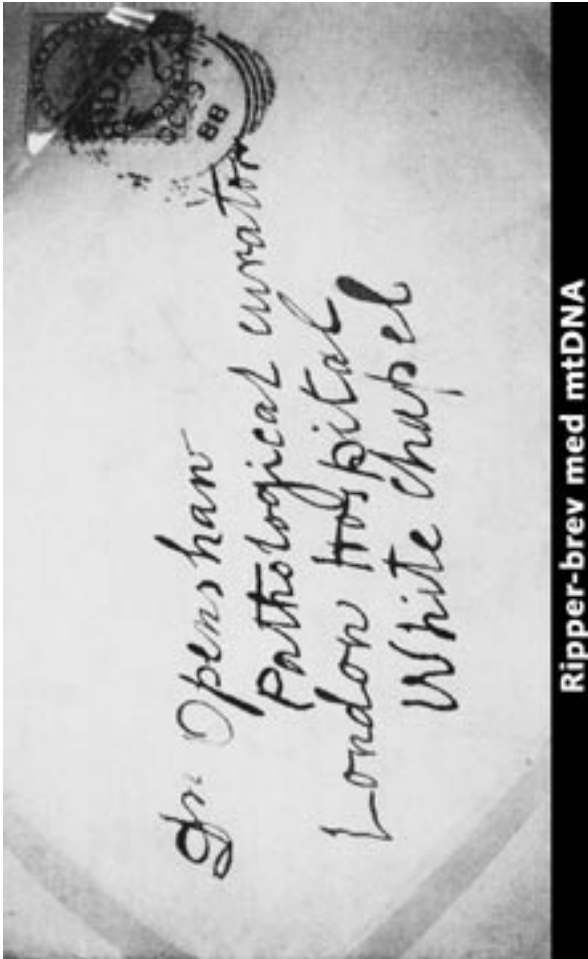 LONDON
OC 29
88
Dr. Openshaw
Pathological curator
London Hospital
White chapel
Ripper-brev med mtDNA